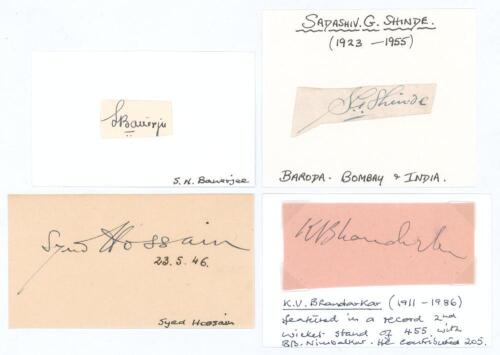 S Banerjee
S. N. Banerjee
SADASHIV. G. SHINDE.
(1923 — 1955)
S.G. Shinde
BARODA. BOMBAY & INDIA.
Syed Hossain
23.5.46.
Syed Hossain
K V Bhandarkar
K.V. BHANDARKAR (1911 - 1986)
featured in a record 2nd
wicket stand of 455 with
B.B. Nimbalkar. He contributed 205.